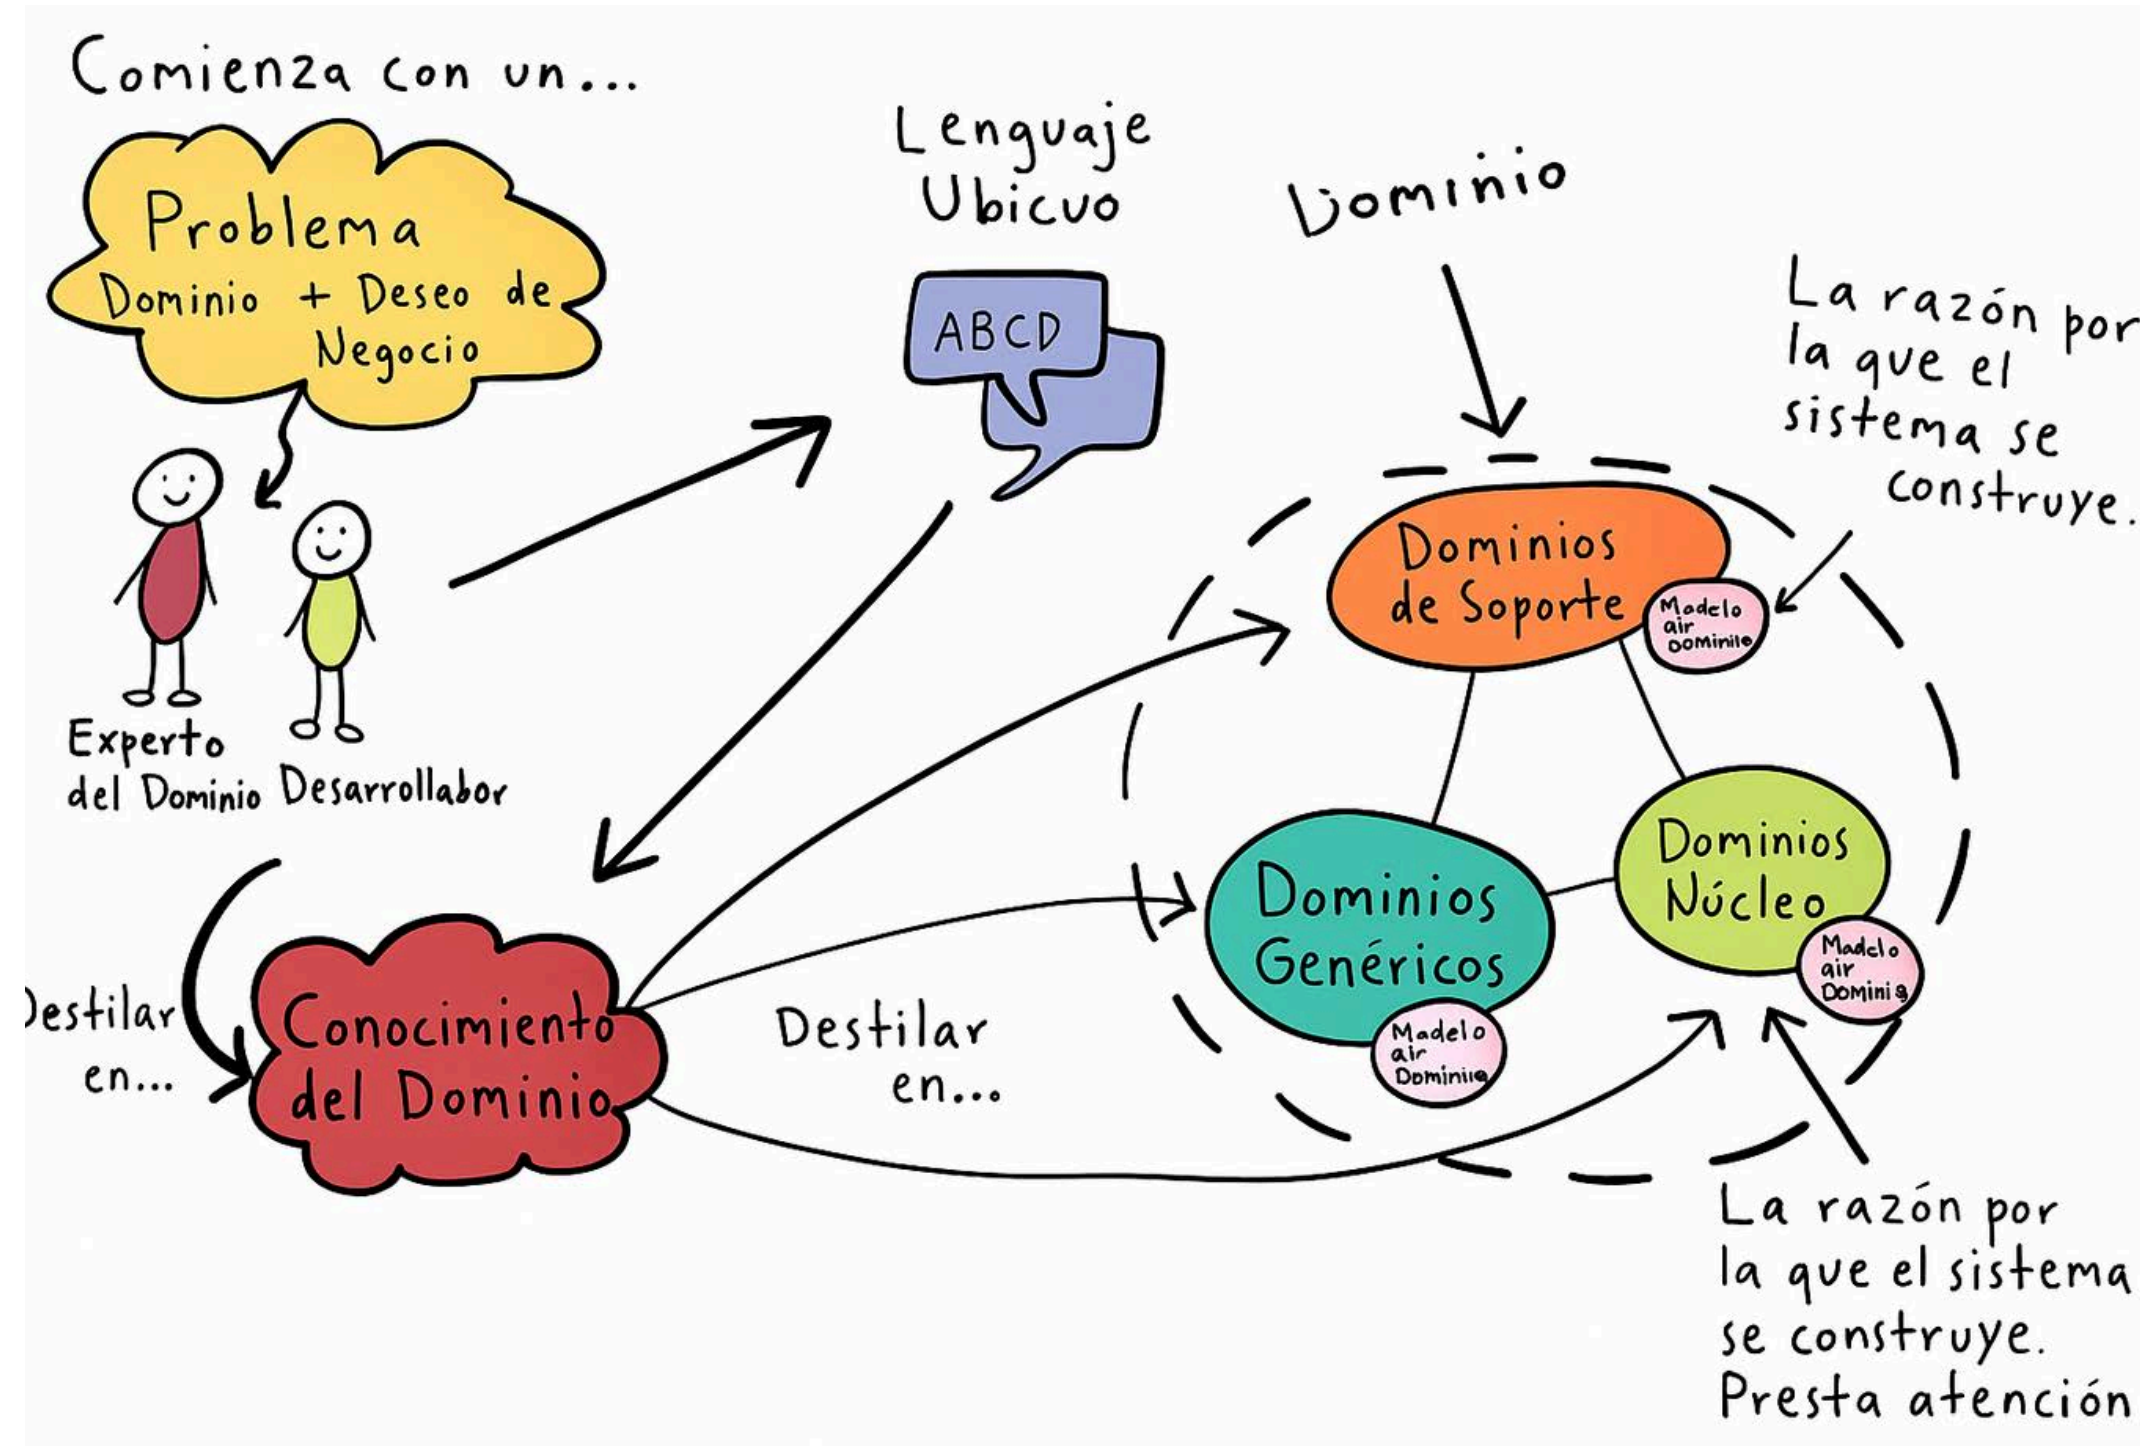 Comienza con un...
Problema
Dominio + Deseo de
Negocio
Experto
del Dominio
Desarrollabor
Lenguaje
Ubicuo
ABCD
Dominio
La razón por
la que el
sistema se
construye.
Dominios
de Soporte
Madelo
air
Dominios
Núcleo
Madelo
air
Dominios
Genéricos
Madelo
air
Destilar
en...
Conocimiento
del Dominio
Destilar
en...
La razón por
la que el sistema
se construye.
Presta atención